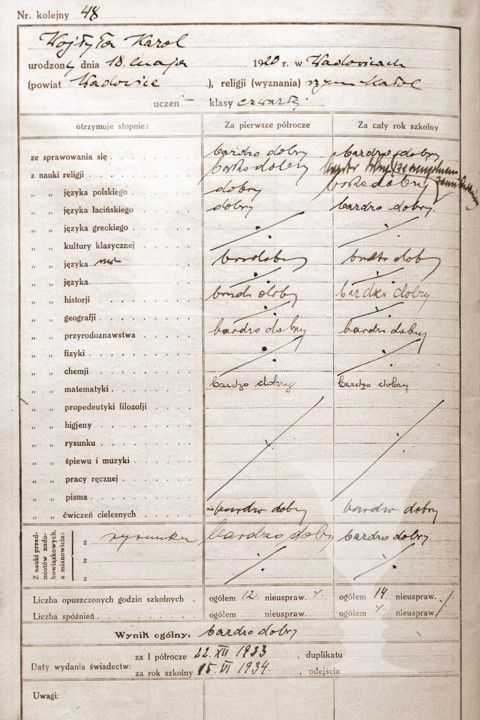 Nr. kolejny 48
Wojtyła Karol
urodzony dnia 18 maja 1920 r. w Wadowicach
(powiat Wadowice ), religii (wyznania) rzym katol
uczeń — klasy czwartej
otrzymuje stopnie: Za pierwsze półrocze Za cały rok szkolny
ze sprawowania się bardzo dobry bardzo dobry
z nauki religii bardzo dobry
„ „ języka polskiego dobry bardzo dobry
„ „ języka łacińskiego dobry bardzo dobry
„ „ języka greckiego
„ „ kultury klasycznej
„ „ języka niem bardzo dobry bardzo dobry
„ „ języka
„ „ historji bardzo dobry bardzo dobry
„ „ geografji
„ „ przyrodoznawstwa bardzo dobry bardzo dobry
„ „ fizyki
„ „ chemji
„ „ matematyki bardzo dobry bardzo dobry
„ „ propedeutyki filozofji
„ „ higjeny
„ „ rysunku
„ „ śpiewu i muzyki
„ „ pracy ręcznej
„ „ pisma
„ „ ćwiczeń cielesnych bardzo dobry bardzo dobry
Z nauki przed-
miotów nado-
bowiązkowych,
a mianowicie:
z rysunku bardzo dobry bardzo dobry
z
Liczba opuszczonych godzin szkolnych ogółem 12 nieuspraw. ogółem 14 nieuspraw.
Liczba spóźnień ogółem nieuspraw. ogółem nieuspraw.
Wynik ogólny: bardzo dobry
Daty wydania świadectw: za I półrocze 22 XII 1933, duplikatu
za rok szkolny 15 VI 1934. odejścia
Uwagi: